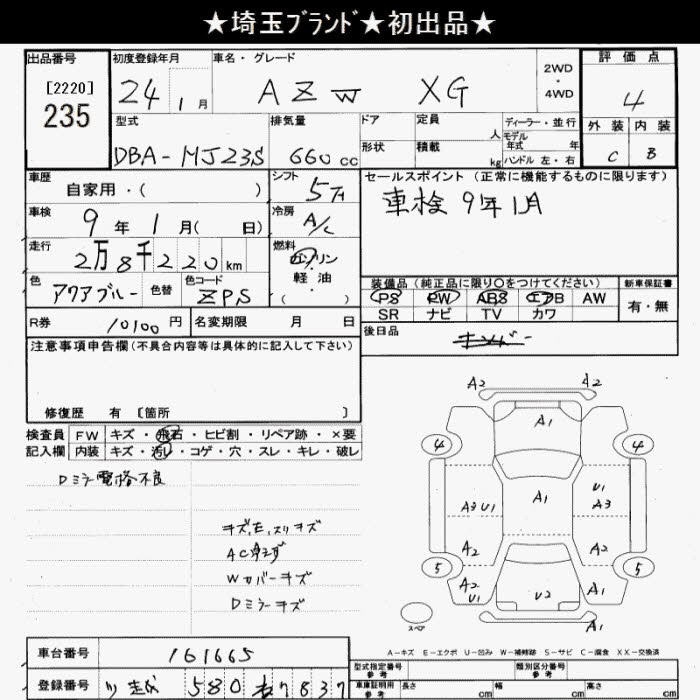 ★埼玉ﾌﾞﾗﾝﾄﾞ★初出品★
出品番号
[2220]
235
初度登録年月
24 1 月
車名・グレード
AZW XG
2WD
・
4WD
評価点
4
外装 内装
C B
型式
DBA-MJ23S
排気量
660 cc
ドア
形状
定員 人
積載 kg
ディーラー・並行
モデル
年式 年
ハンドル 左・右
車歴
自家用・( )
シフト
5
セールスポイント (正常に機能するものに限ります)
車検 9年1月
車検
9 年 1 月( 日)
冷房
A/C
走行
2万8千220km
燃料
ガソリン
軽・油
( )
色
アクアブルー
色替
色コード
ZPS
装備品(純正品に限り○をつけてください)
PS PW ABS エアB AW
SR ナビ TV カワ
新車保証書
有・無
R券
10100 円
名変期限 月 日
後日品
注意事項申告欄(不具合内容等は具体的に記入して下さい)
修復歴 有 〔箇所 〕
検査員
記入欄
FW キズ・飛石・ヒビ割・リペア跡・×要
内装 キズ・汚レ・コゲ・穴・スレ・キレ・破レ
Dミラー電格不良
キズ,E,スリキズ
Wカバーキズ
Dミラーキズ
A2 A2
A1
4 4
A3 U1 A1 U1 A3
A2 A2
5 5
A2 U1 U2 A1
A1
スペア
A-キズ E-エクボ U-凹み W-補修跡 S-サビ C-腐食 XX-交換済
車台番号
161665
登録番号
580 7837
型式指定番号
参考
類別区分番号
参考
車庫証明用
参考
長さ cm
幅 cm
高さ cm